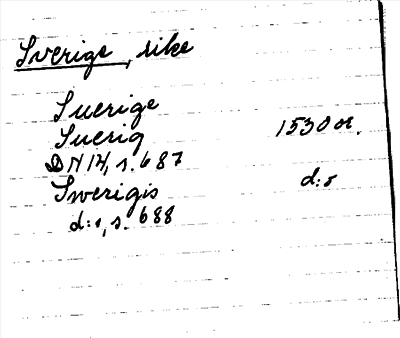 Sverige, rike
Suerige
Suerig 1530 ot.
DN 14, s. 687
Swerigis d:o
d:o, s. 688